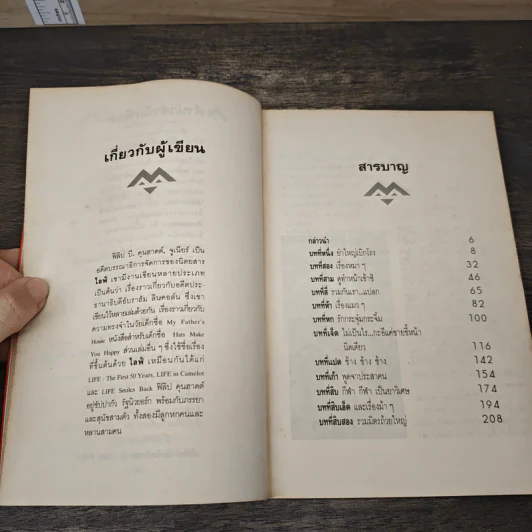 เกี่ยวกับผู้เขียน
ฟิลิป บี. คุนฮาดต์, จูเนียร์ เป็น
อดีตบรรณาธิการจัดการของนิตยสาร
ไลฟ์ เขามีงานเขียนหลายประเภท
เป็นต้นว่า เรื่องราวเกี่ยวกับอดีตประ-
ธานาธิบดีอับราฮัม ลินคอล์น ซึ่งเขา
เขียนไว้หลายเล่มด้วยกัน เรื่องราวเกี่ยวกับ
ความทรงจำในวัยเด็กชื่อ My Father's
House หนังสือสำหรับเด็กชื่อ Hats Make
You Happy ส่วนเล่มอื่น ๆ ซึ่งใช้ชื่อเรื่อง
ที่ขึ้นต้นด้วย ไลฟ์ เหมือนกันได้แก่
LIFE : The First 50 Years, LIFE in Camelot
และ LIFE Smiles Back ฟิลิป คุนฮาดต์
อยู่ชัปปากัว รัฐนิวยอร์ก พร้อมกับภรรยา
และสุนัขสามตัว ทั้งสองมีลูกหกคนและ
หลานสามคน
สารบาญ
กล่าวนำ 6
บทที่หนึ่ง ยำใหญ่เบิกโรง 8
บทที่สอง เรื่องหมา ๆ 32
บทที่สาม ดูทำหน้าเข้าซิ 46
บทที่สี่ รวมกันเรา...แปลก 65
บทที่ห้า เรื่องแมว ๆ 82
บทที่หก รักกระจุ๋มกระจิ๋ม 100
บทที่เจ็ด ไม่เป็นไร...กะอีแค่ชายชี้หน้า
นิดเดียว 116
บทที่แปด ช้าง ช้าง ช้าง 142
บทที่เก้า พูดจาประสาคน 154
บทที่สิบ กีฬา กีฬา เป็นยาวิเศษ 174
บทที่สิบเอ็ด และเรื่องม้า ๆ 194
บทที่สิบสอง รวมมิตรถ้วยใหญ่ 208